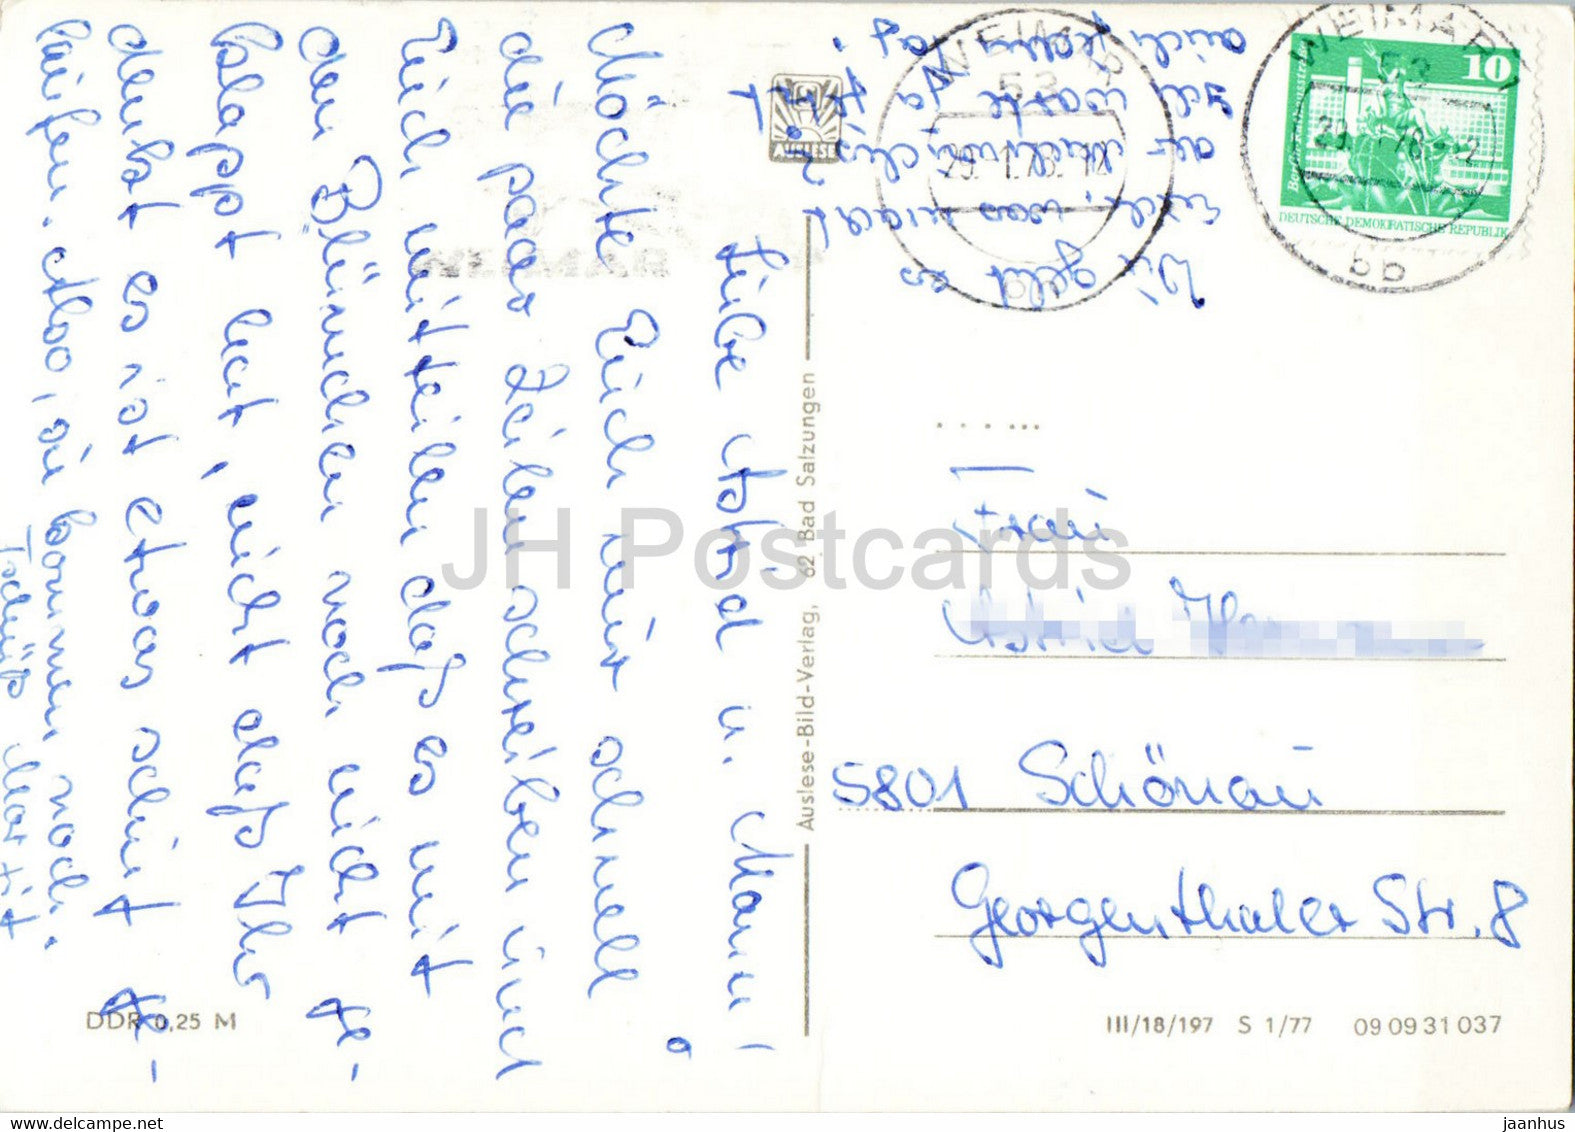 Liebe Astrid u. Mann!
Möchte Euch nur schnell
die paar Zeilen schreiben und
Euch mitteilen daß es mit
den Blümchen noch nicht ge-
klappt hat, nicht daß Ihr
denkt es ist etwas schief ge-
laufen. Also, sie kommen noch.
Tschüß
Wie geht es
Euch, was macht
auch jeden Tag!
Frau
Astrid
5801 Schönau
Georgenthaler Str. 8
Auslese-Bild-Verlag, 62 Bad Salzungen
AUSLESE
WEIMAR 1
53
29.-1.78.-12
bb
WEIMAR
53
29.-1.78.-12
10
DEUTSCHE DEMOKRATISCHE REPUBLIK
DDR 0,25 M
III/18/197 S 1/77 09 09 31 037
JH Postcards
jaanhus
www.delcampe.net